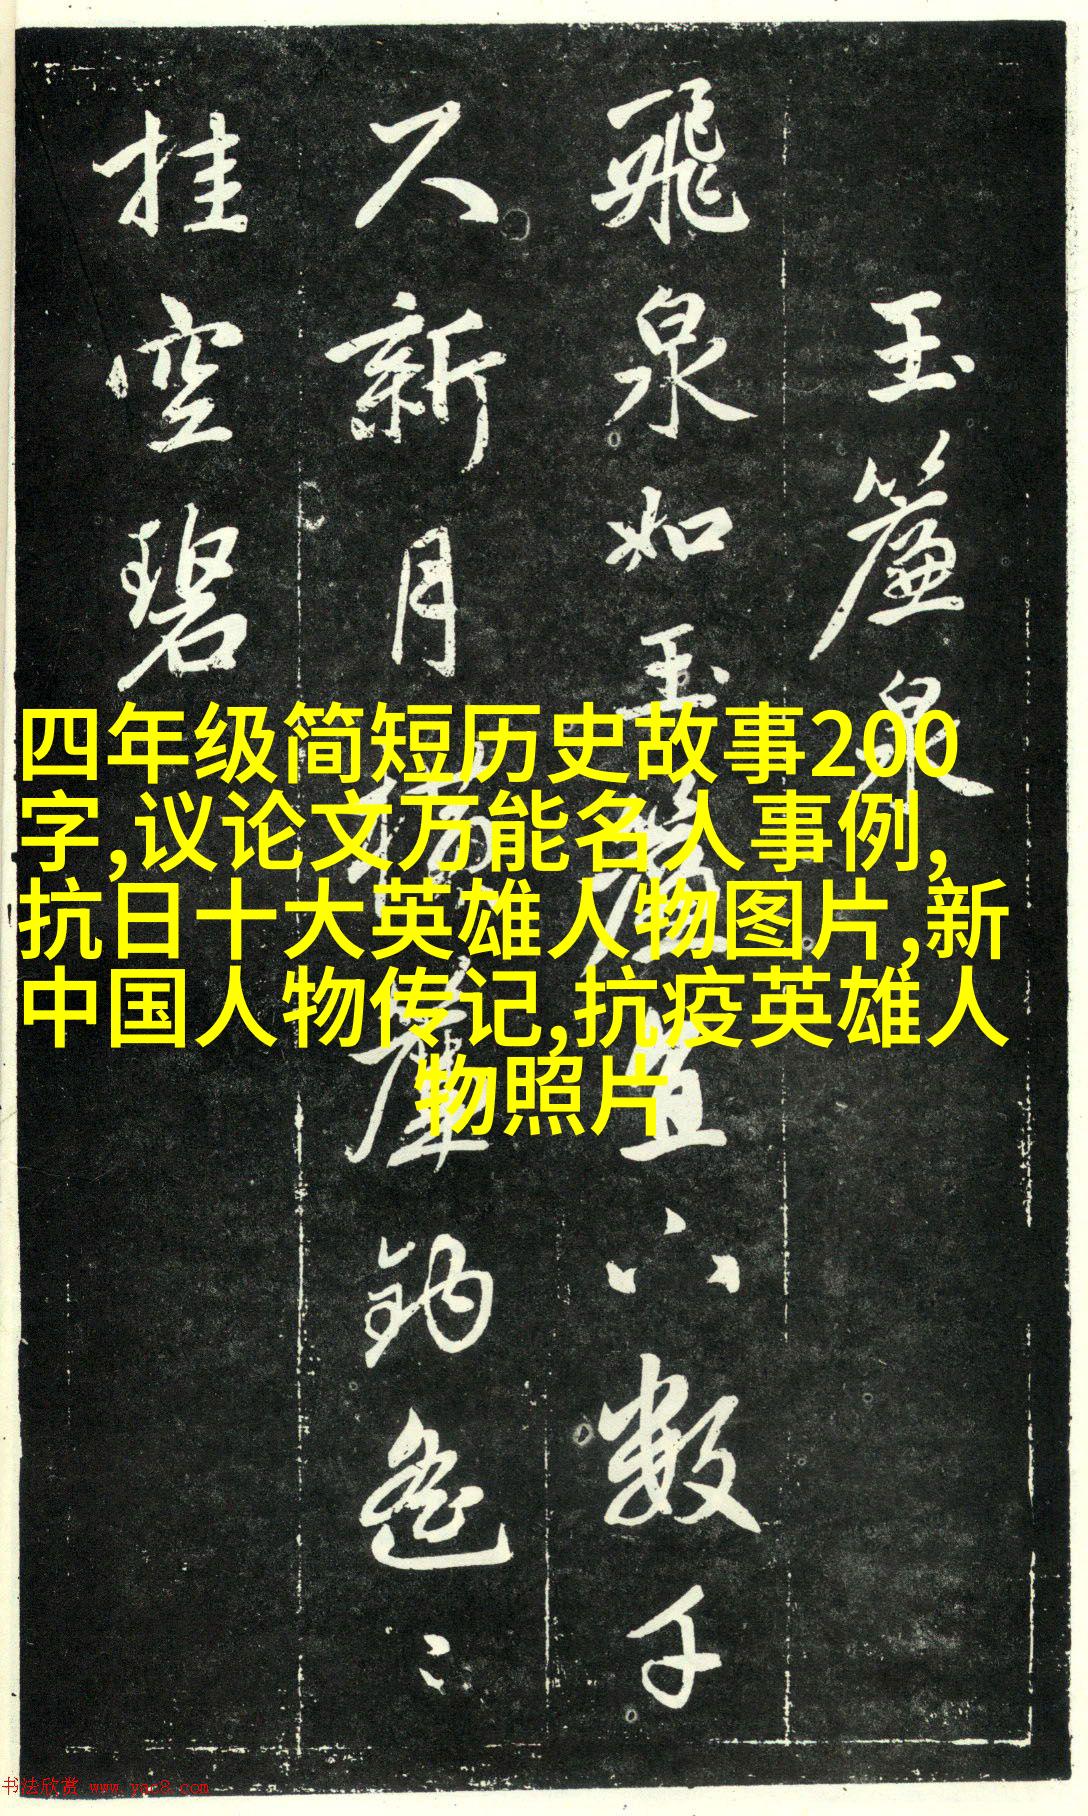 玉簾泉
飛泉如玉簾直下數千
尺新月橫簾鈎遙〻
挂空碧
四年级简短历史故事200
字,议论文万能名人事例,
抗日十大英雄人物图片,新
中国人物传记,抗疫英雄人
物照片
书法欣赏 www.yac8.com